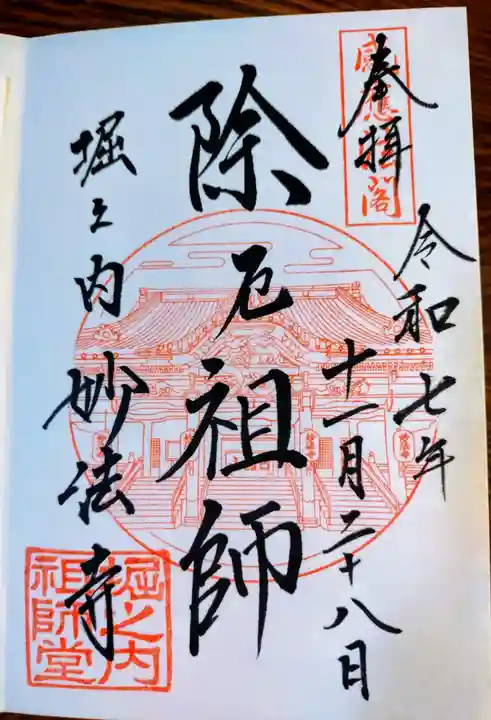 奉拝
令和七年
十一月二十八日
除厄祖師
堀之内妙法寺
堀之内
祖師堂